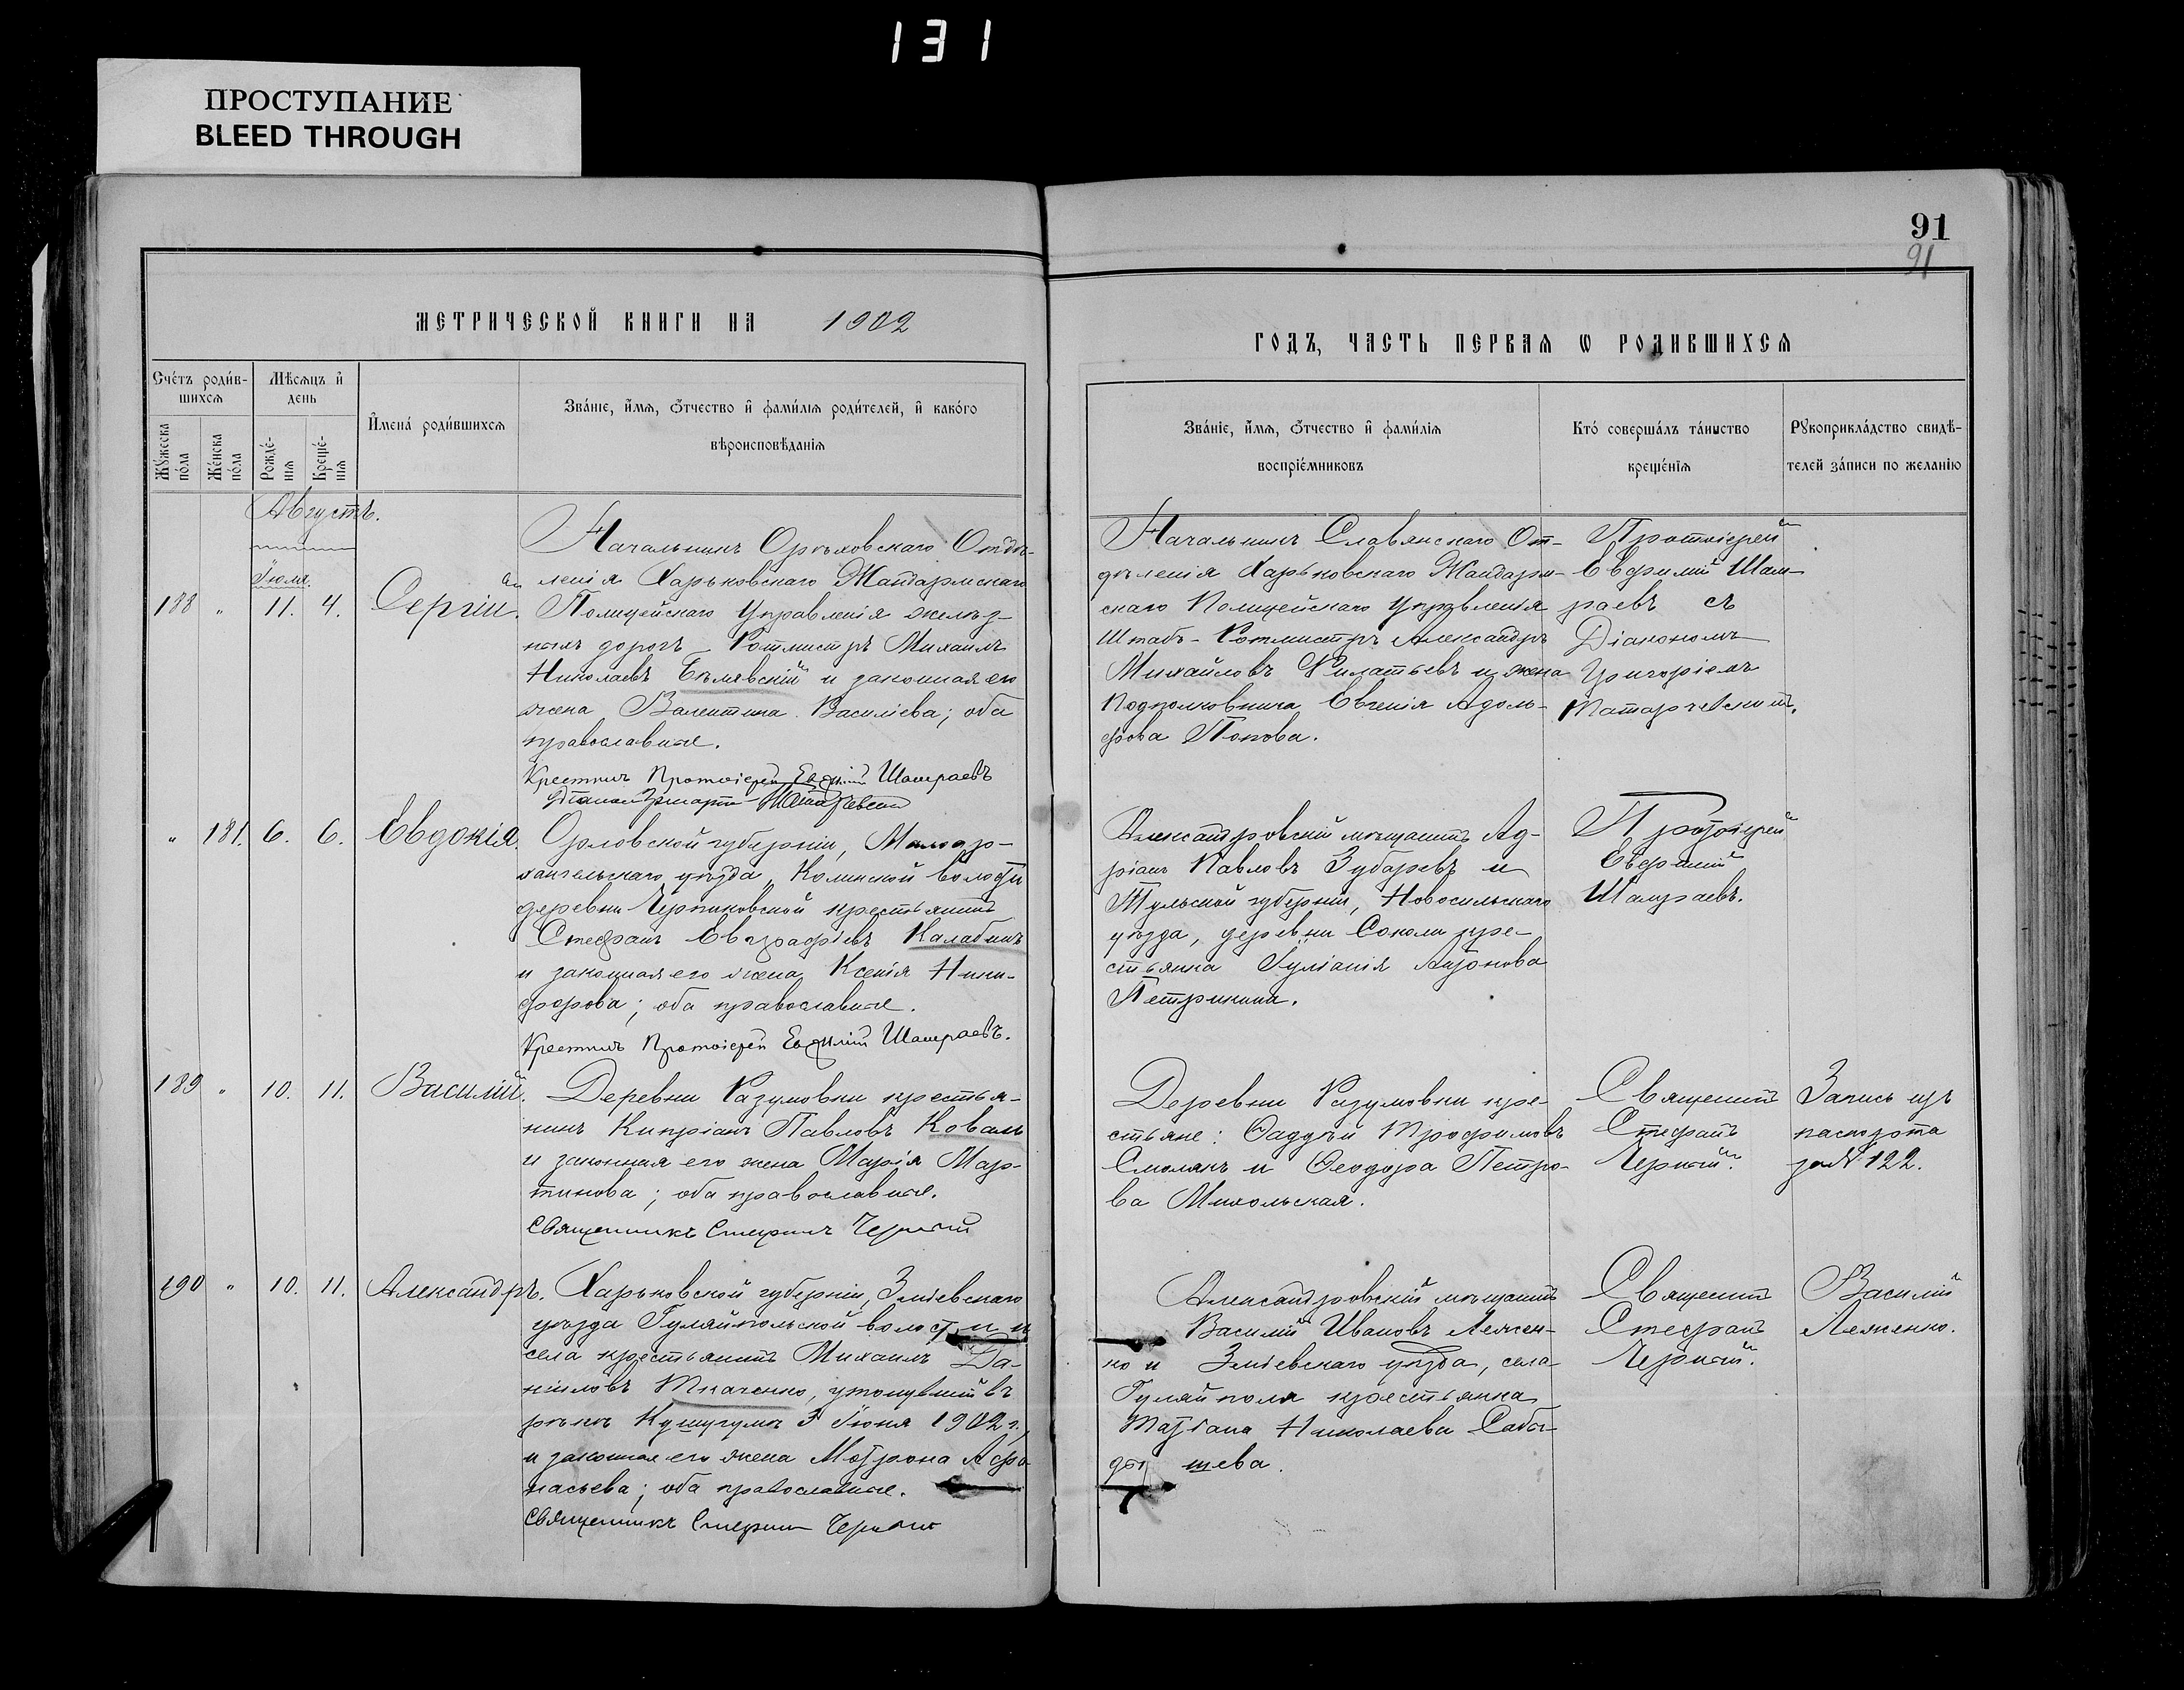 131
ПРОСТУПАНИЕ
BLEED THROUGH
91
91
МЕТРИЧЕСКОЙ КНИГИ НА 1902
ГОДЪ, ЧАСТЬ ПЕРВАЯ Ѡ РОДИВШИХСЯ
Счетъ родив-
шихся
Мѣсяцъ и
день
Имена родившихся
Званіе, имя, отчество и фамилія родителей, и какого
вѣроисповѣданія
Мужеска
пола
Женска
пола
Рожде-
нія
Креще-
нія
Званіе, имя, отчество и фамилія
воспріемниковъ
Кто совершалъ таинство
крещенія
Рукоприкладство свидѣ-
телей записи по желанію
Августъ.
Іюля.
188 " 11. 4. Сергій.
Начальникъ Орѣховскаго Отдѣ-
ленія Харьковскаго Жандармскаго
Полицейскаго Управленія желѣз-
ныхъ дорогъ Ротмистръ Михаилъ
Николаевъ Бѣлявскій и законная его
жена Валентина Василіева; оба
православные.
Крестилъ Протоіерей Евѳимій Шамраевъ
Начальникъ Славянскаго От-
дѣленія Харьковскаго Жандарм-
скаго Полицейскаго Управленія
Штабъ-Ротмистръ Александръ
Михайловъ Филатьевъ и жена
Подполковника Евгенія Адоль-
фова Попова.
Протоіерей
Евфимій Шам-
раевъ съ
Діакономъ
Григоріемъ
" 181. 6. 6. Евдокія.
Орловской губерніи, Малоар-
хангельскаго уѣзда, волости
деревни крестьянинъ
Стефанъ Евграфіевъ Калабинъ
и законная его жена Ксенія Ники-
форова; оба православные.
Крестилъ Протоіерей Евѳимій Шамраевъ.
Александровскій мѣщанинъ Ад-
ріанъ Павловъ Зубаревъ и
Тульской губерніи, Новосильскаго
уѣзда, деревни Соколи кре-
стьянка Іуліанія
Петрикина.
Протоіерей
Евфимій
Шамраевъ.
189 " 10. 11. Василій.
Деревни Разумовки крестья-
нинъ Кипріанъ Павловъ Коваль
и законная его жена Марія Мар-
тинова; оба православные.
Священникъ Стефанъ Черный
Деревни Разумовки кре-
стьяне: Фаддей Трофимовъ
Смолякъ и Феодора Петро-
ва Микольская.
Священникъ
Стефанъ
Черный.
Запись изъ
паспорта
за № 122.
190 " 10. 11. Александръ.
Харьковской губерніи, Зміевскаго
уѣзда Гуляйпольской волости и
села крестьянинъ Михаилъ Да-
ніиловъ Ткаченко, утонувшій въ
рѣкѣ Кушугумѣ 3 Іюня 1902 г.,
и законная его жена Матрона Афа-
насьева; оба православные.
Священникъ Стефанъ Черный
Александровскій мѣщанинъ
Василій Ивановъ Леженъ-
ко и Зміевскаго уѣзда, села
Гуляйполя крестьянка
Татіана Николаева
Священникъ
Стефанъ
Черный.
Василій
Леженко.